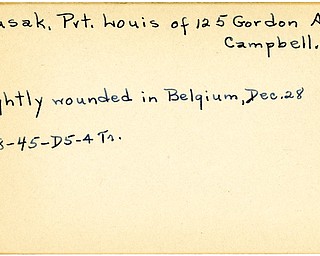 usak, Pvt. Louis of 125 Gordon A
Campbell.
ghtly wounded in Belgium, Dec. 28
8-45-D5-4 Tr.